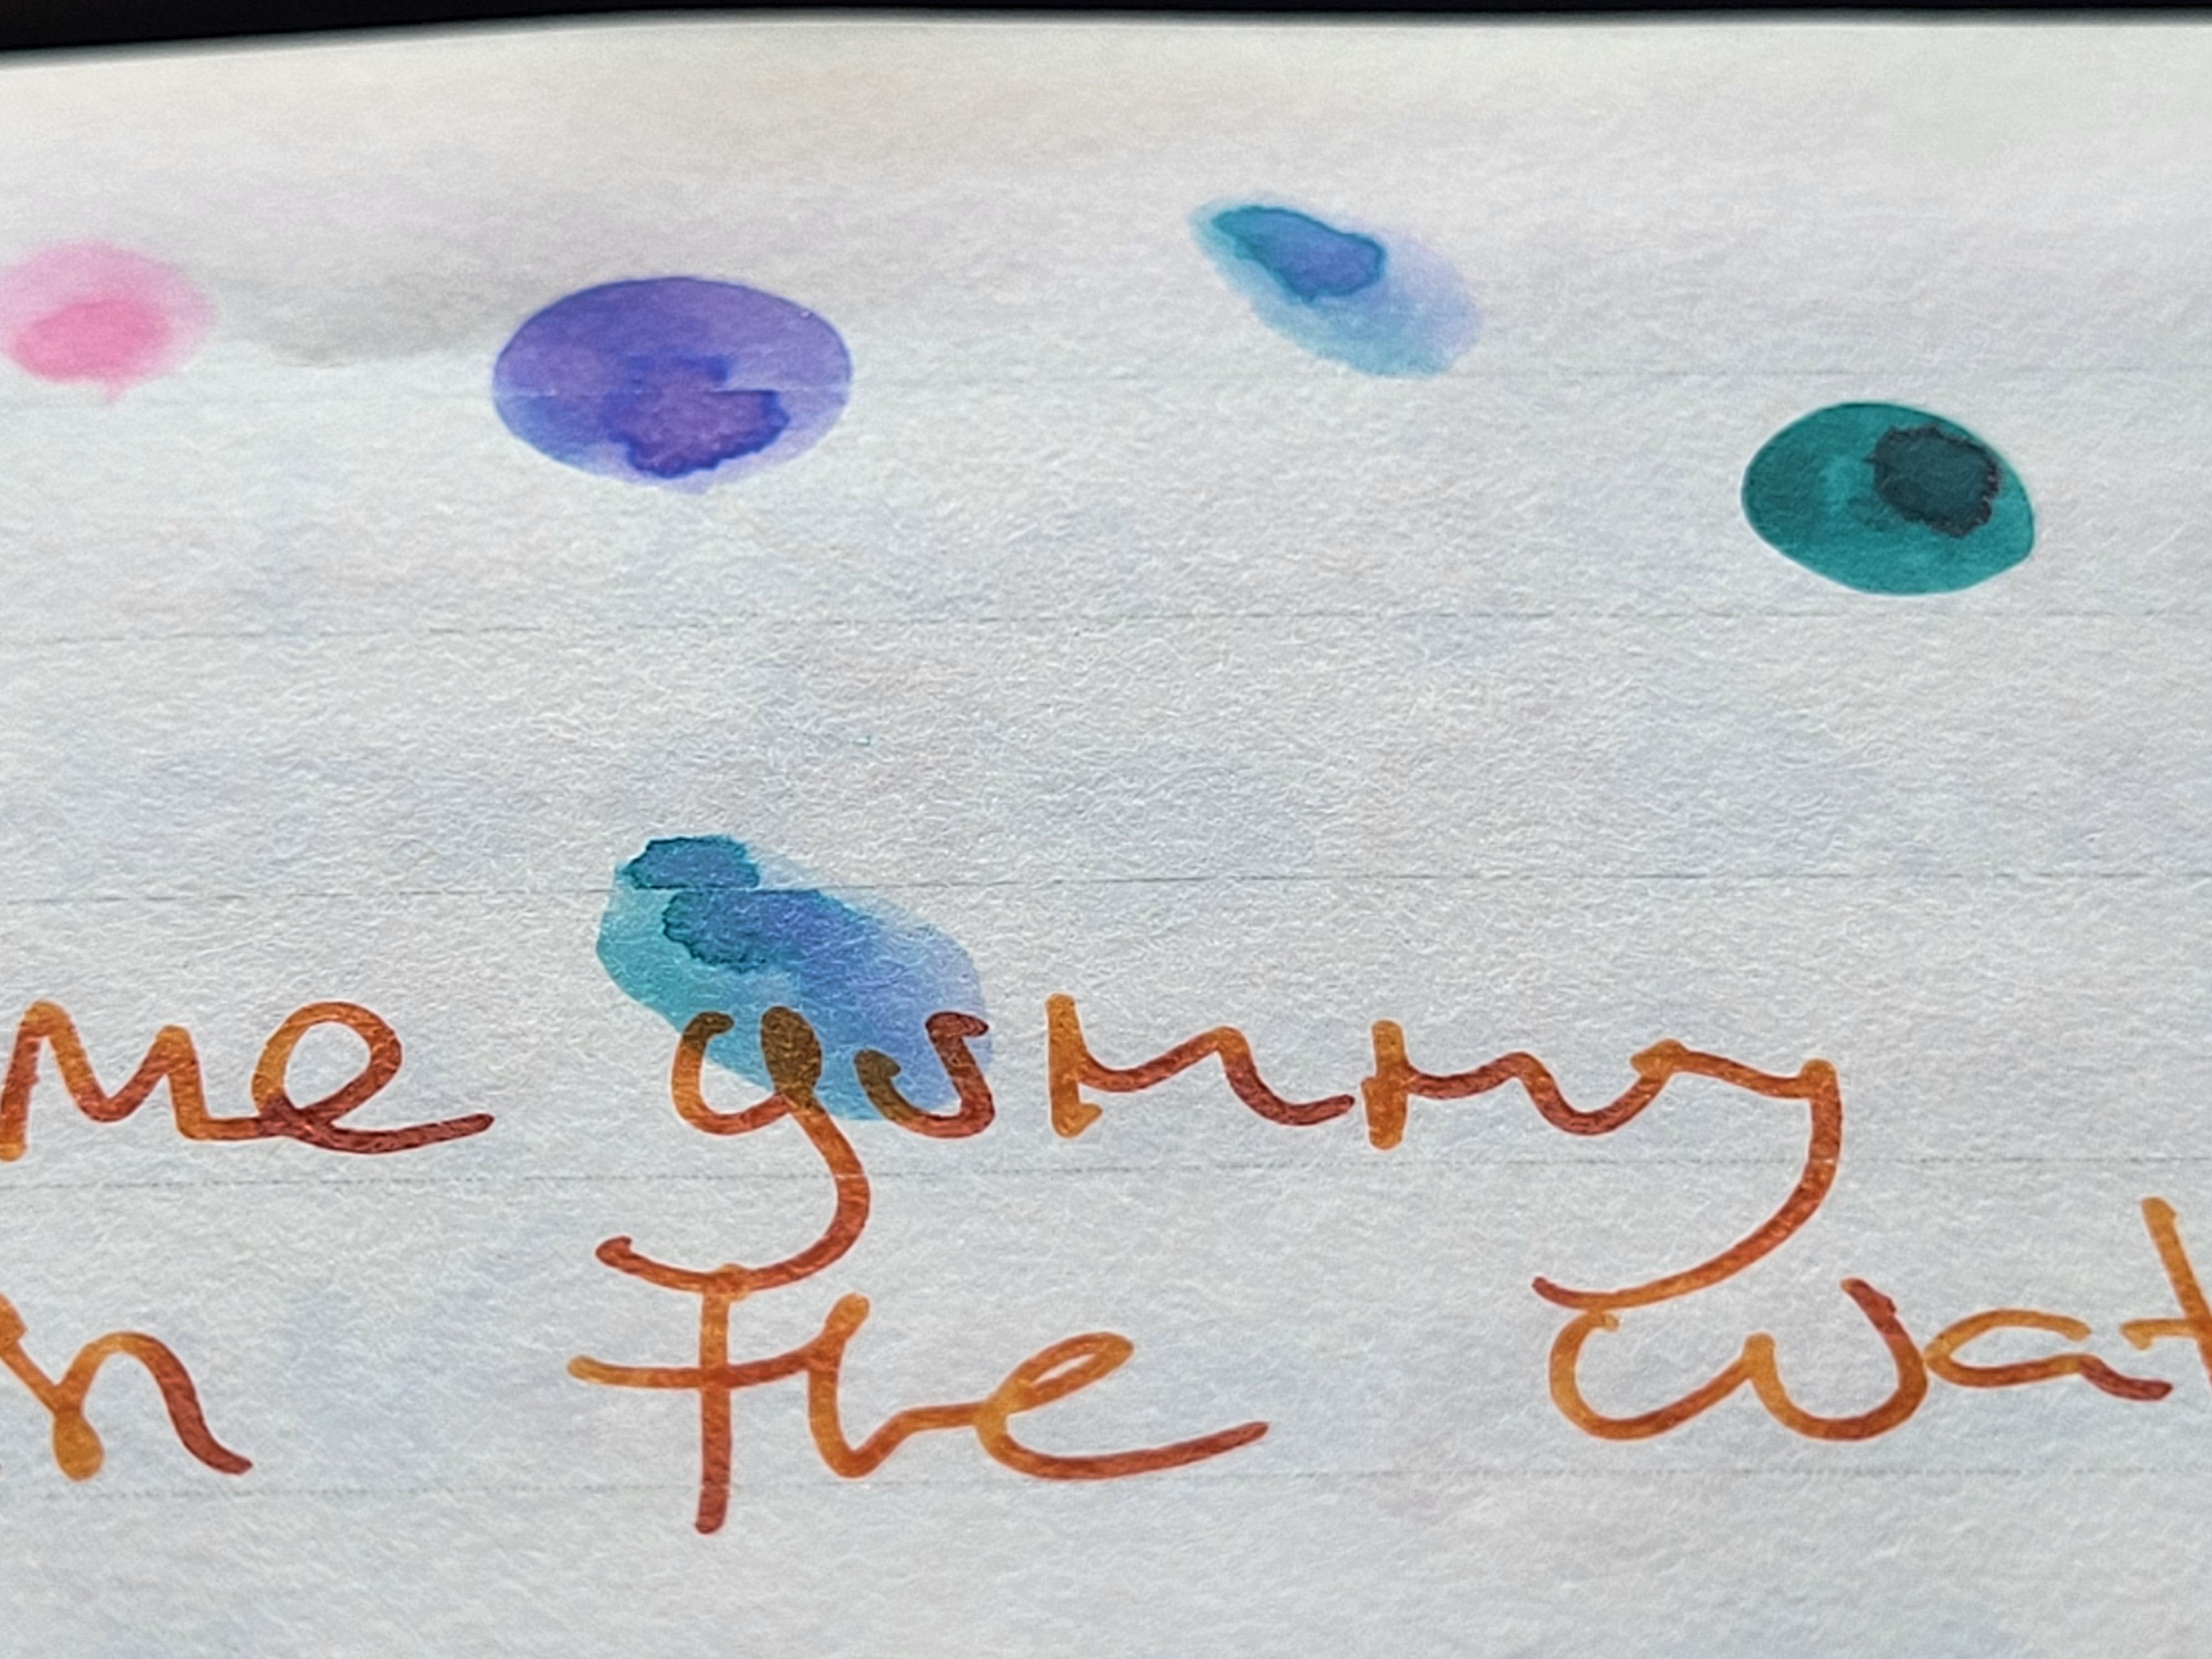 me gummy
n the wat